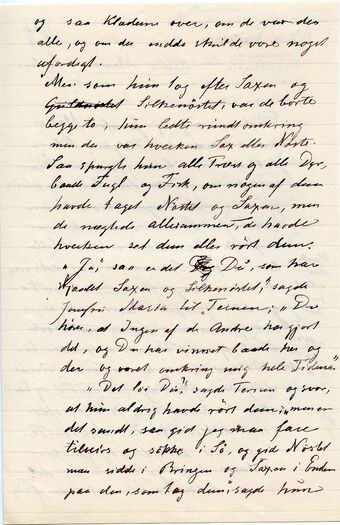 og saa Klæderne over, om de var der
alle, og om der endda skulde være noget
ufærdigt.
Men som hun tog efter Saxen og
Silkenøstet, var de borte
begge to; hun ledte rundt omkring
men der var hverken Sax eller Nøste.
Saa spurgte hun alle Træer og alle Dyr,
baade Fugl og Fisk, om nogen af dem
havde taget Nøstet og Saxen, men
de nægtede allesammen, de havde
hverken set dem eller rørt dem.
"Ja, saa er det Du, som har
Saxen og Silkenøstet", sagde
Jomfru Maria til Ternen; "Du
hører, at Ingen af de Andre har gjort
det, og Du har vimset baade her og
der og været omkring mig hele Tiden."
"Det løi Du", sagde Ternen og svor,
at hun aldrig havde rørt dem; "men er
det sandt, saa gid jeg maa fare
tilveirs og søkke i Sø, og gid Nøstet
maa sidde i Bringen og Saxen i Enden
paa den, som tog dem", sagde hun